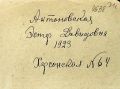 Антоновская
Эстер Давидовна
1923
Херсонская № 64